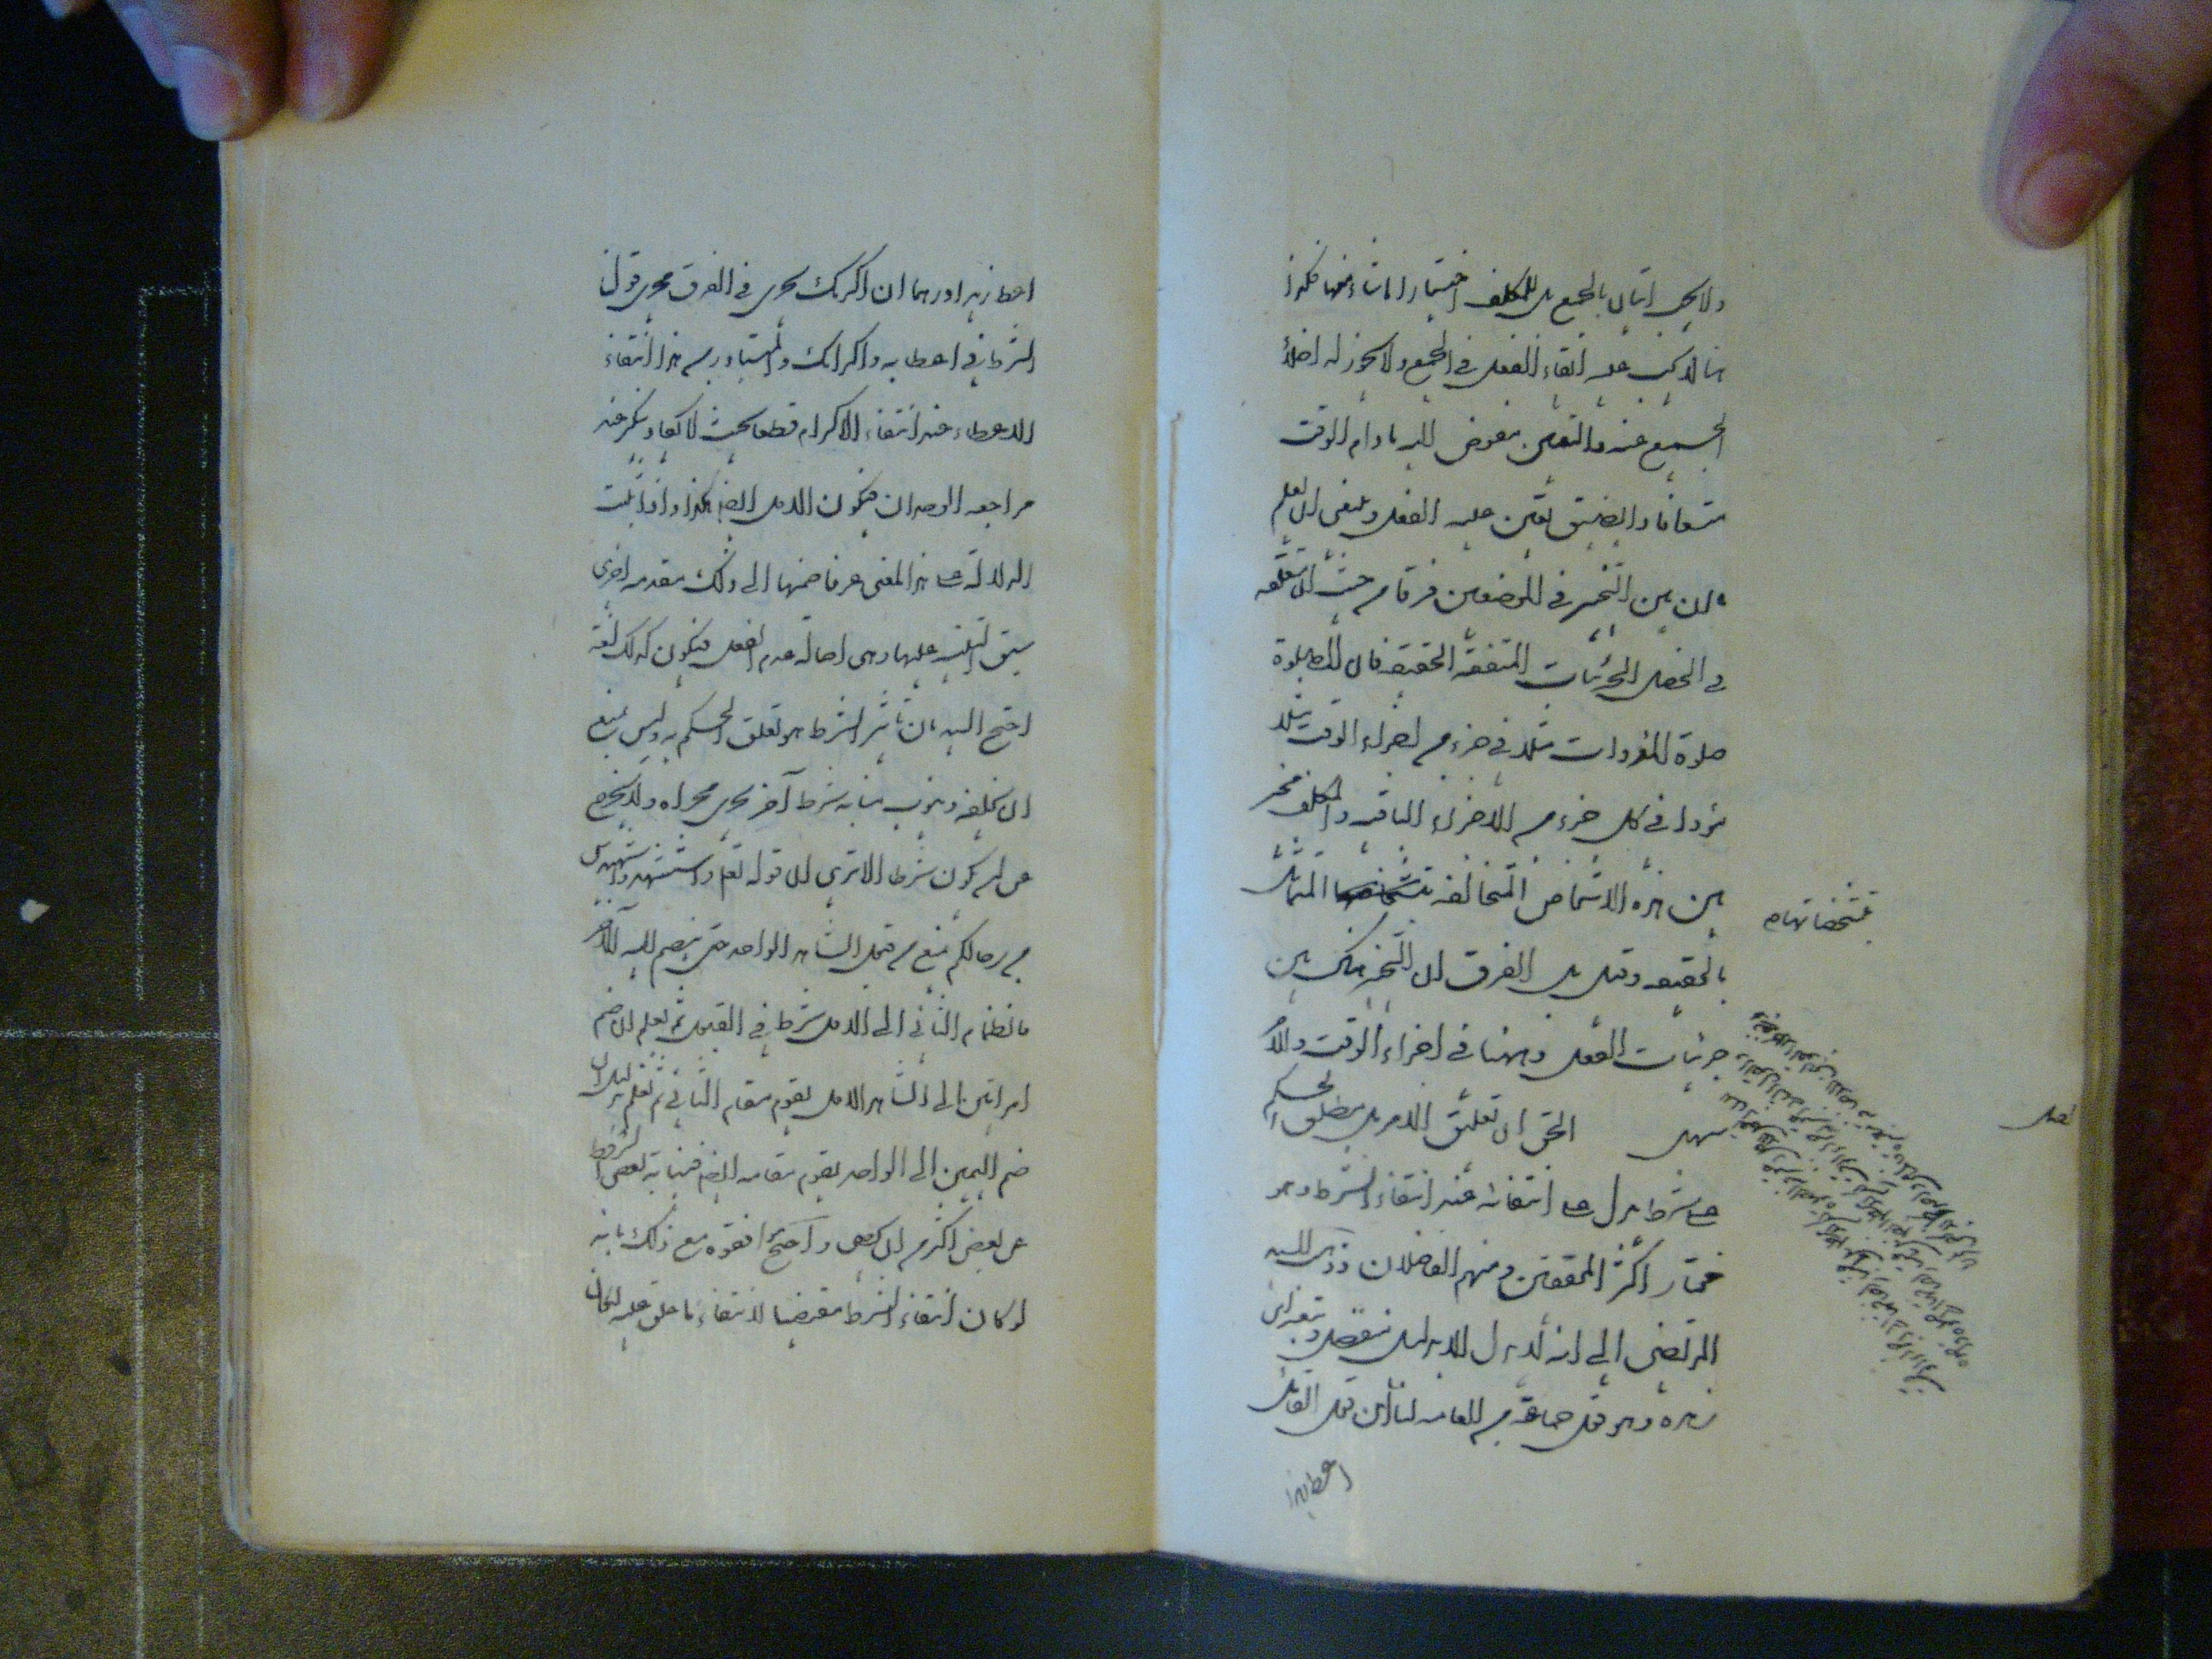 ولا يجب اتيان بالجميع بل للمكلف اختيار ما شاء منها فكذا
هنا لا يجب عليه ايقاع الفعل في الجميع ولا يجوز له اخلاء
الجميع عنه والتعيين مفوض اليه ما دام الوقت
متسعا فاذا تضيق تعين عليه الفعل وينبغي ان يعلم
ان بين التخيير في الموضعين فرقا من حيث ان متعلقه
في الخصال الجزئيات المتخالفة الحقيقة فان الصلوة
مثلا
صلوة المؤداة مثلا في جزء من اجزاء الوقت
المؤداة في كل جزء من الاجزاء الباقية والمكلف مخير
بين هذه الاشخاص المتخالفة المتماثلة
بتشخصاتها
بالحقيقة وقيل بل الفرق ان التخيير هناك بين
جزئيات الفعل وههنا في اجزاء الوقت والامر
سهل الحق ان تعليق الامر بل مطلق الحكم
اصل
على شرط يدل على انتفائه عند انتفاء الشرط وهو
مختار اكثر المحققين ومنهم الفاضلان وذهب السيد
المرتضى الى انه لا يدل الا بدليل منفصل وتبعه ابن
زهرة وهو قول جماعة من العامة لنا ان قول القائل
اعط زيدا
اعط زيدا درهما ان اكرمك يجري في العرف مجرى قولنا
الشرط في اعطائه اكرامك والمتبادر من هذا انتفاء
الاعطاء عند انتفاء الاكرام قطعا بحيث لا يكاد ينكر عند
مراجعة الوجدان فيكون الاول ايضا هكذا واذا ثبت
الدلالة على هذا المعنى عرفا ضممنا الى ذلك مقدمة اخرى
سبق التنبيه عليها وهي اصالة عدم النقل فيكون كذلك لغة
احتج السيد بان تاثير الشرط هو تعلق الحكم به وليس يمتنع
ان يخلفه وينوب منابه شرط آخر يجري مجراه ولا يخرج
عن ان يكون شرطا الا ترى ان قوله تعالى واستشهدوا شهيدين
من رجالكم يمنع من قبول الشاهد الواحد حتى ينضم اليه الآخر
فانضمام الثاني الى الاول شرط في القبول ثم يعلم ان ضم
امراتين الى الشاهد الاول يقوم مقام الثاني ثم يعلم بدليل ان
ضم اليمين الى الواحد يقوم مقامه ايضا فنيابة بعض الشروط
عن بعض اكثر من ان يحصى واحتج موافقوه مع ذلك بانه
لو كان انتفاء الشرط مقتضيا لانتفاء ما علق عليه لكان